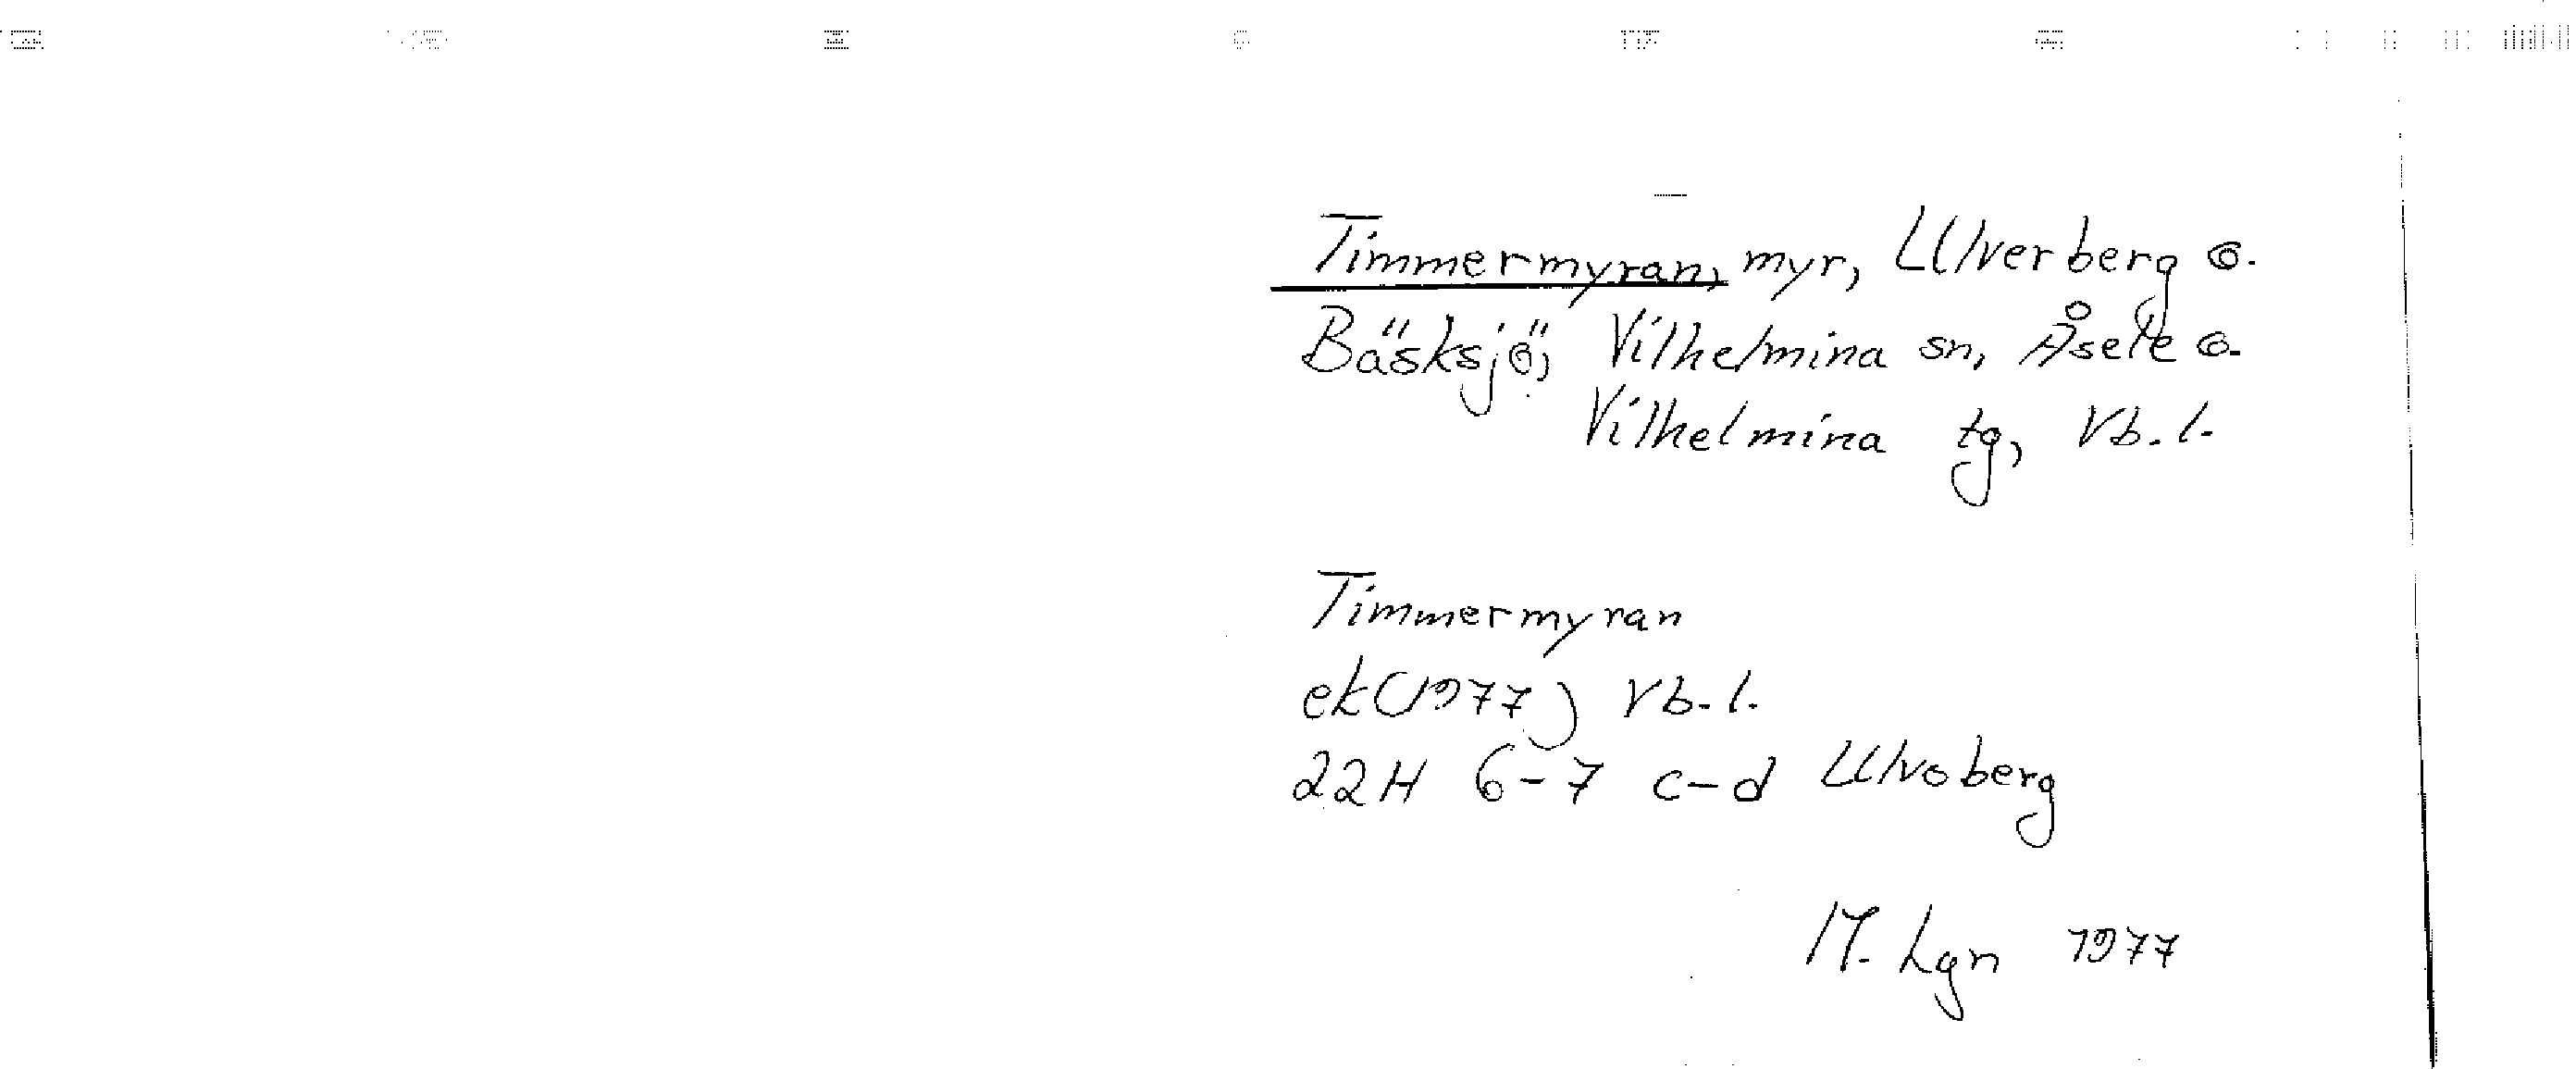 Timmermyran, myr, Ulverberg o.
Bäsksjö, Vilhelmina sn, Åsele o.
Vilhelmina tg, Vb. l.
Timmermyran
ek (1977) Vb. l.
22H 6-7 c-d Ulvoberg
M. Lgn 1977